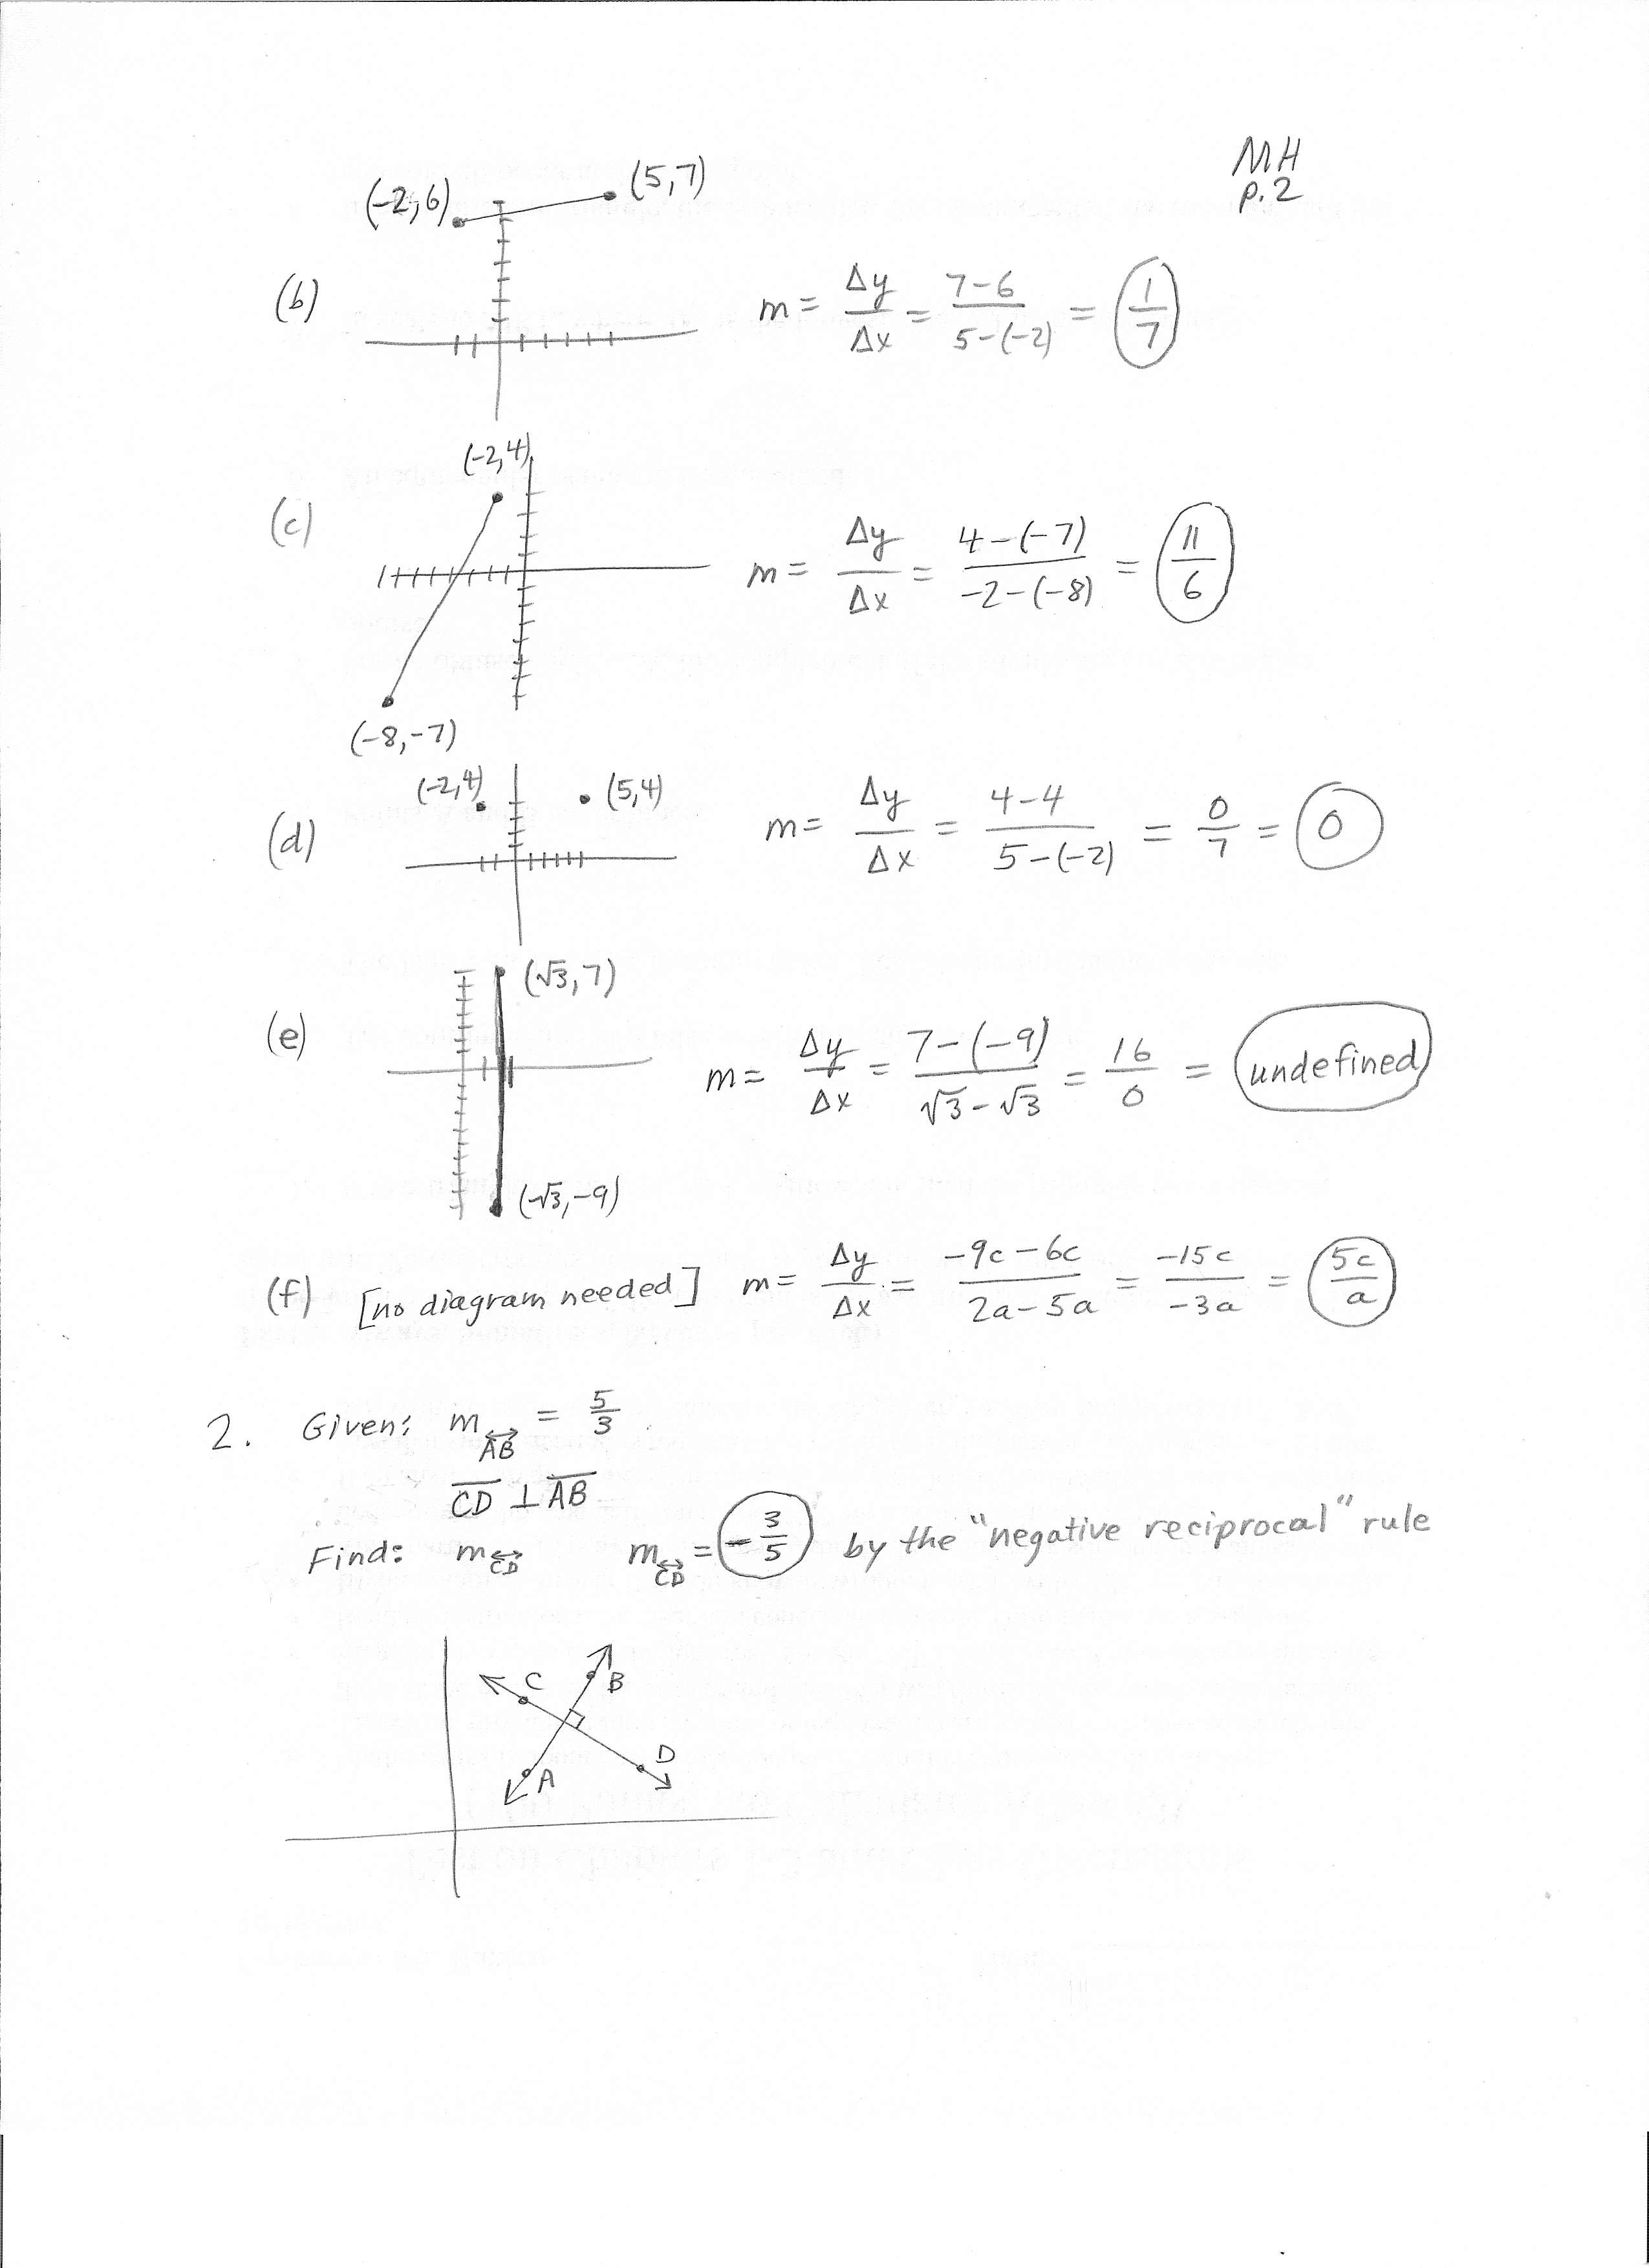 MH
p.2
(-2,6) (5,7)
(b) m = Δy/Δx = 7-6/5-(-2) = 1/7
(-2,4)
(c) m = Δy/Δx = 4-(-7)/-2-(-8) = 11/6
(-8,-7)
(-2,4) (5,4)
(d) m = Δy/Δx = 4-4/5-(-2) = 0/7 = 0
(√3,7)
(e) m = Δy/Δx = 7-(-9)/√3-√3 = 16/0 = undefined
(-√3,-9)
(f) [no diagram needed] m = Δy/Δx = -9c-6c/2a-5a = -15c/-3a = 5c/a
2. Given: m AB = 5/3
CD ⊥ AB
Find: m CD m CD = -3/5 by the "negative reciprocal" rule
C B
A D